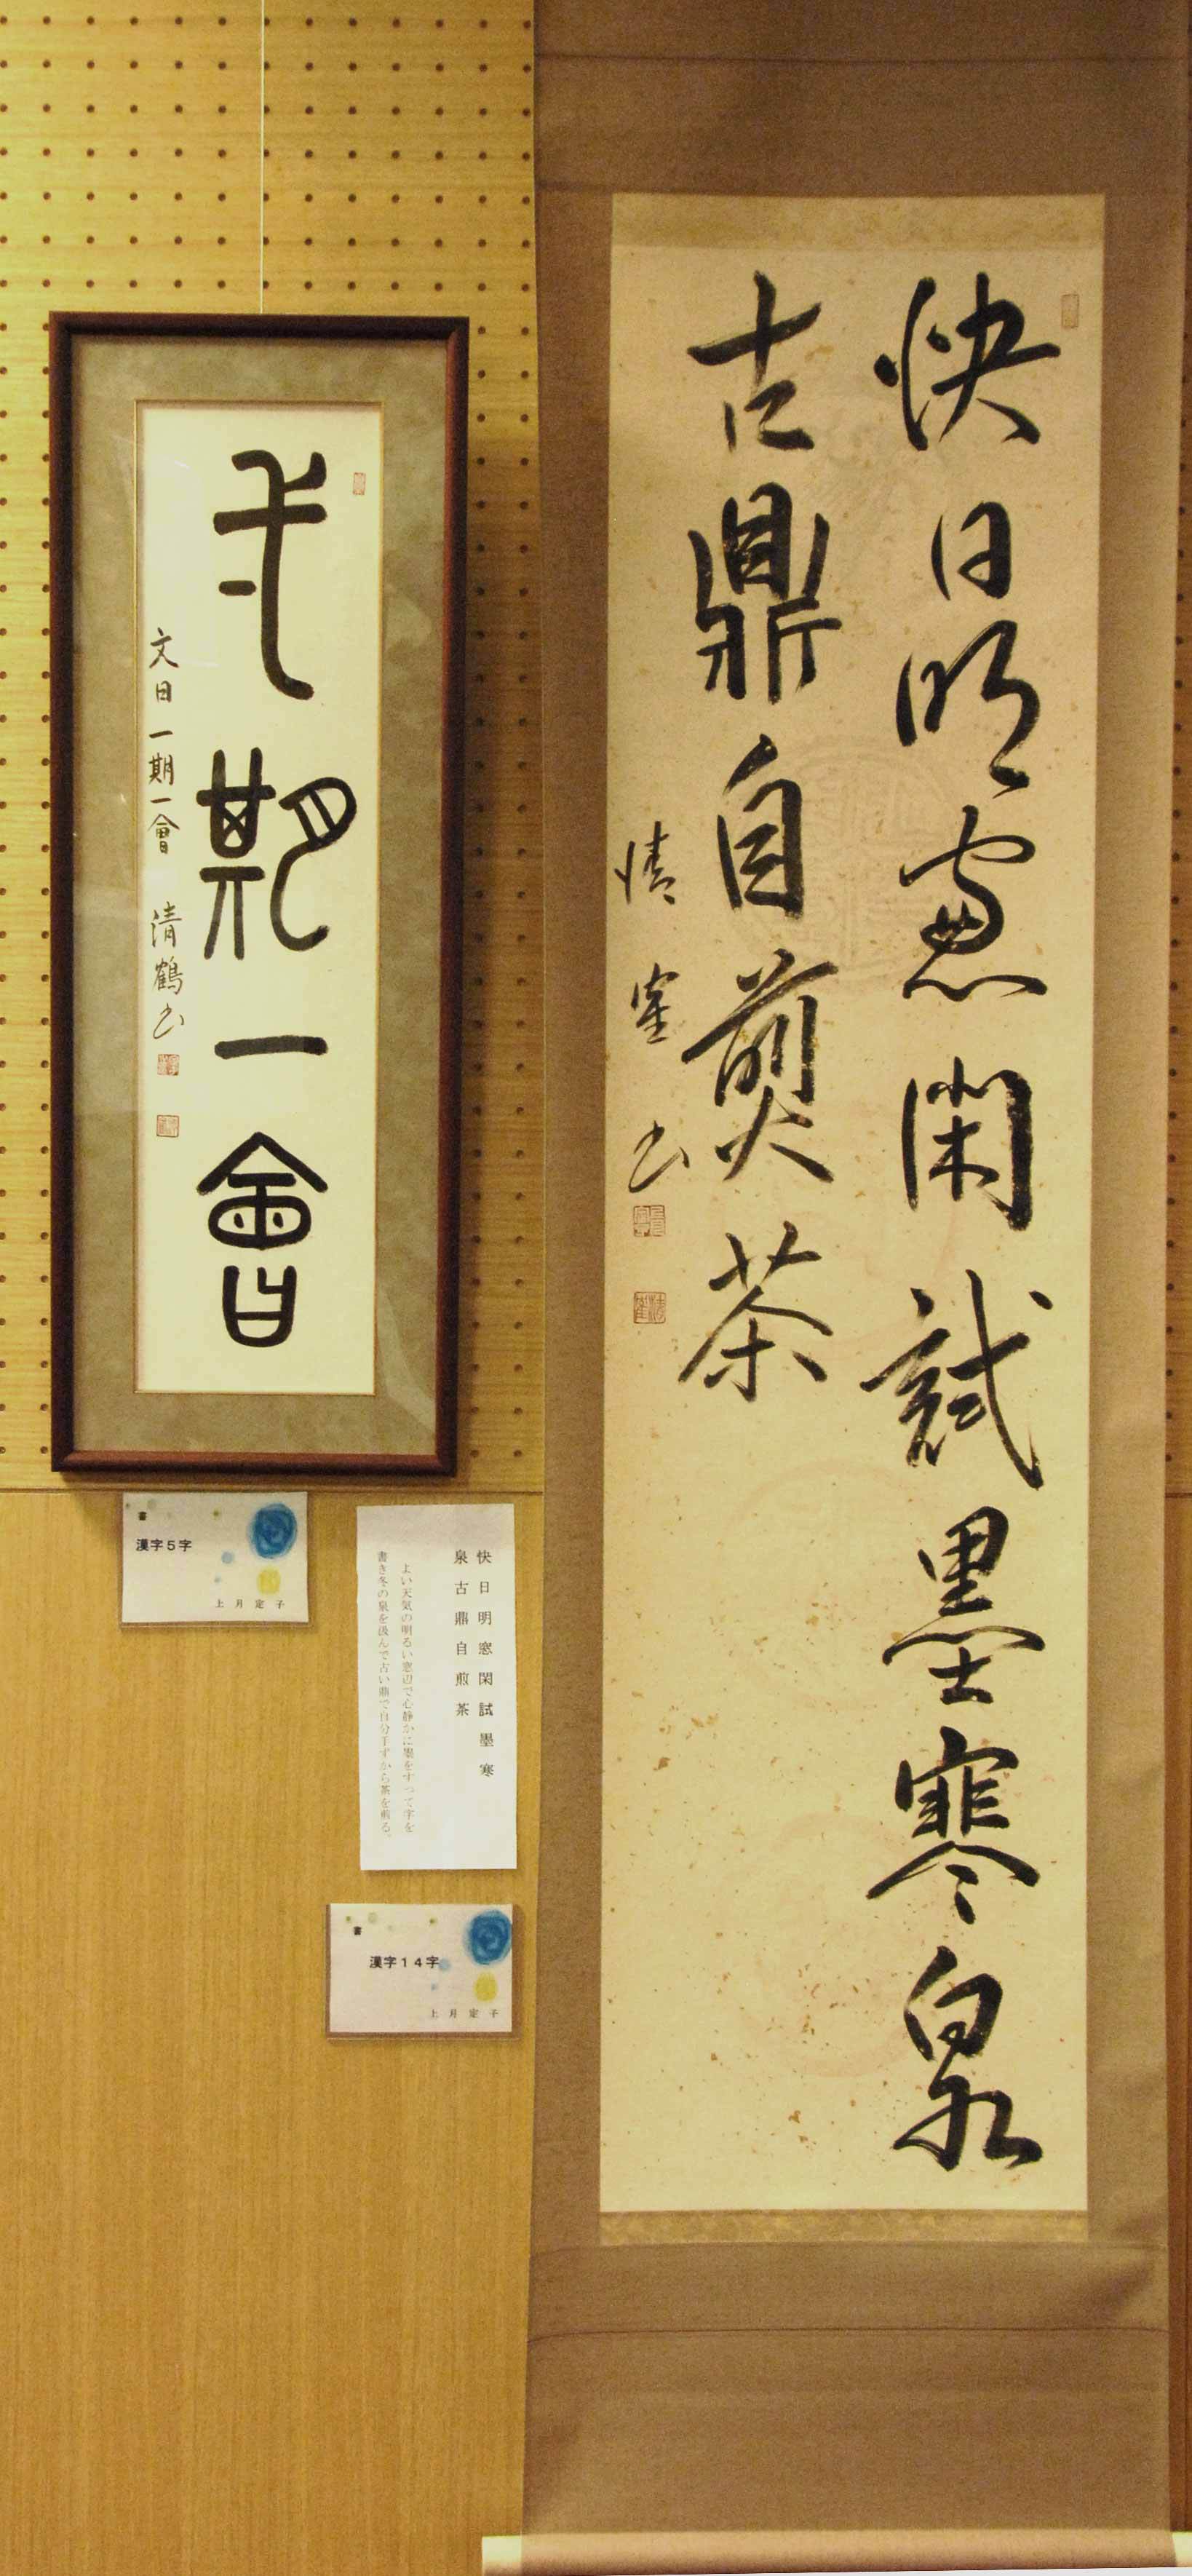 快日明窓閑試墨寒泉
古鼎自煎茶
清寉书
弌期一會
文曰 一期一會 清鶴书
書
漢字5字
上月定子
快日明窓閑試墨寒
泉古鼎自煎茶
よい天気の明るい窓辺で心静かに墨をすって字を
書き冬の泉を汲んで古い鼎で自分手ずから茶を煎る。
書
漢字14字
上月定子